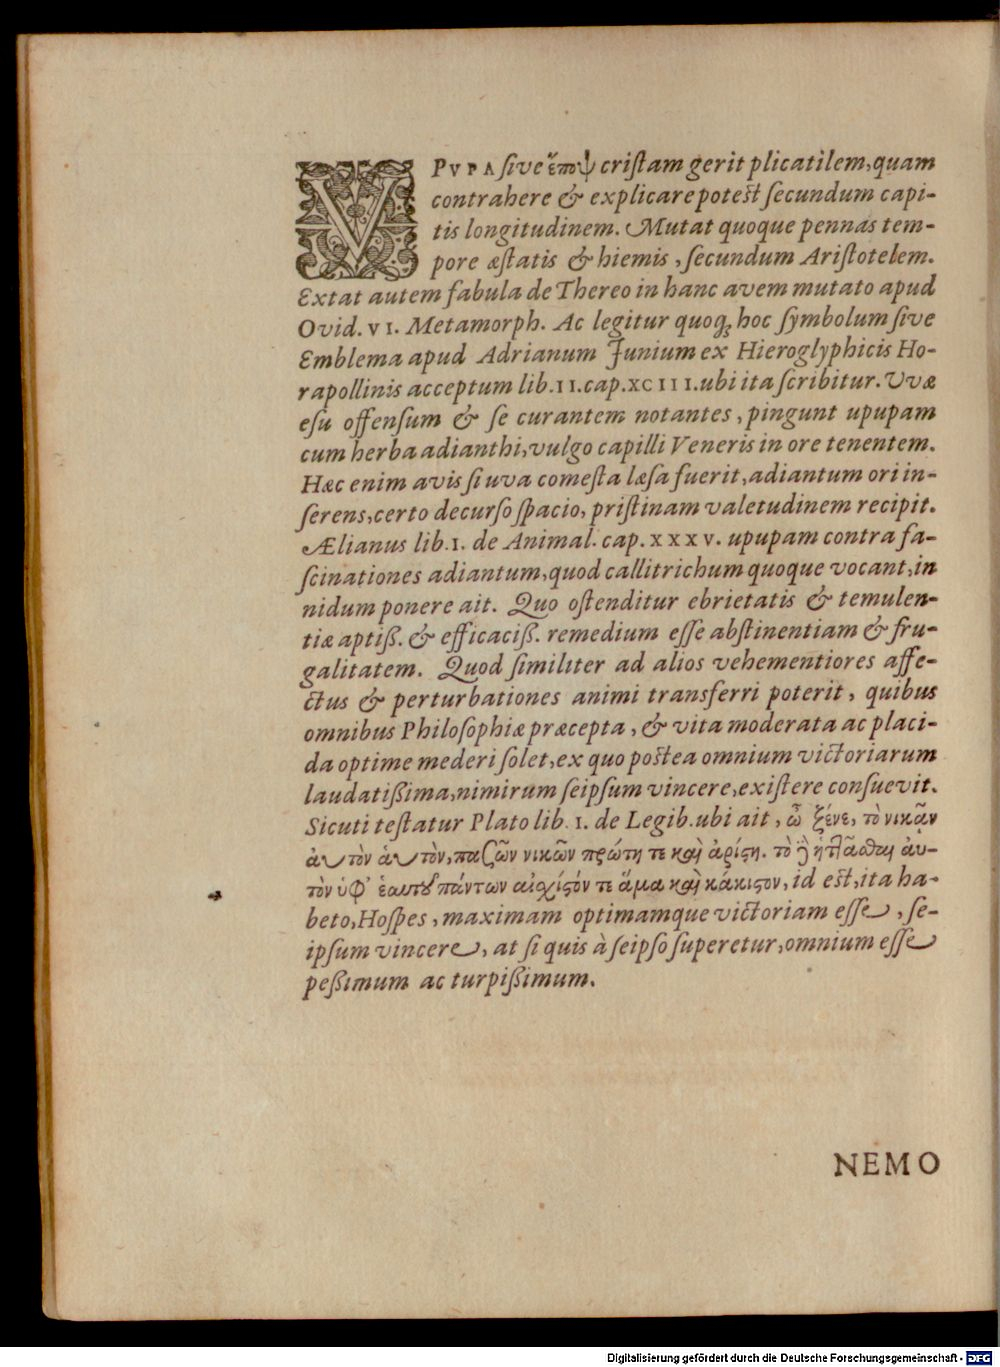 VPVPA ſive ἔποψ criſtam gerit plicatilem, quam
contrahere & explicare poteſt ſecundum capi-
tis longitudinem. Mutat quoque pennas tem-
pore æſtatis & hiemis, ſecundum Ariſtotelem.
Extat autem fabula de Thereo in hanc avem mutato apud
Ovid. VI. Metamorph. Ac legitur quoq; hoc ſymbolum ſive
Emblema apud Adrianum Junium ex Hieroglyphicis Ho-
rapollinis acceptum lib. II. cap. XCIII. ubi ita ſcribitur. Uvæ
eſu offenſum & ſe curantem notantes, pingunt upupam
cum herba adianthi, vulgo capilli Veneris in ore tenentem.
Hæc enim avis ſi uva comeſta læſa fuerit, adiantum ori in-
ſerens, certo decurſo ſpacio, priſtinam valetudinem recipit.
Ælianus lib. I. de Animal. cap. XXXV. upupam contra fa-
ſcinationes adiantum, quod callitrichum quoque vocant, in
nidum ponere ait. Quo oſtenditur ebrietatis & temulen-
tiæ aptiß. & efficaciß. remedium eſſe abſtinentiam & fru-
galitatem. Quod ſimiliter ad alios vehementiores affe-
ctus & perturbationes animi transferri poterit, quibus
omnibus Philoſophiæ præcepta, & vita moderata ac placi-
da optime mederi ſolet, ex quo poſtea omnium victoriarum
laudatißima, nimirum ſeipſum vincere, exiſtere conſuevit.
Sicuti teſtatur Plato lib. I. de Legib. ubi ait, ὦ ξένε, τὸ νικᾷν
ἀυτὸν ἁυτὸν, πασῶν νικῶν πρώτη τε καὶ ἀρίστη. τὸ δὲ ἡττᾶσθαι ἀυ-
τὸν ὑφ' ἑαυτοῦ πάντων αἰσχίστόν τε ἅμα καὶ κάκιστον, id eſt, ita ha-
beto, Hoſpes, maximam optimamque victoriam eſſe, ſe-
ipſum vincere, at ſi quis à ſeipſo ſuperetur, omnium eſſe
peßimum ac turpißimum.
NEMO
Digitalisierung gefördert durch die Deutsche Forschungsgemeinschaft - DFG